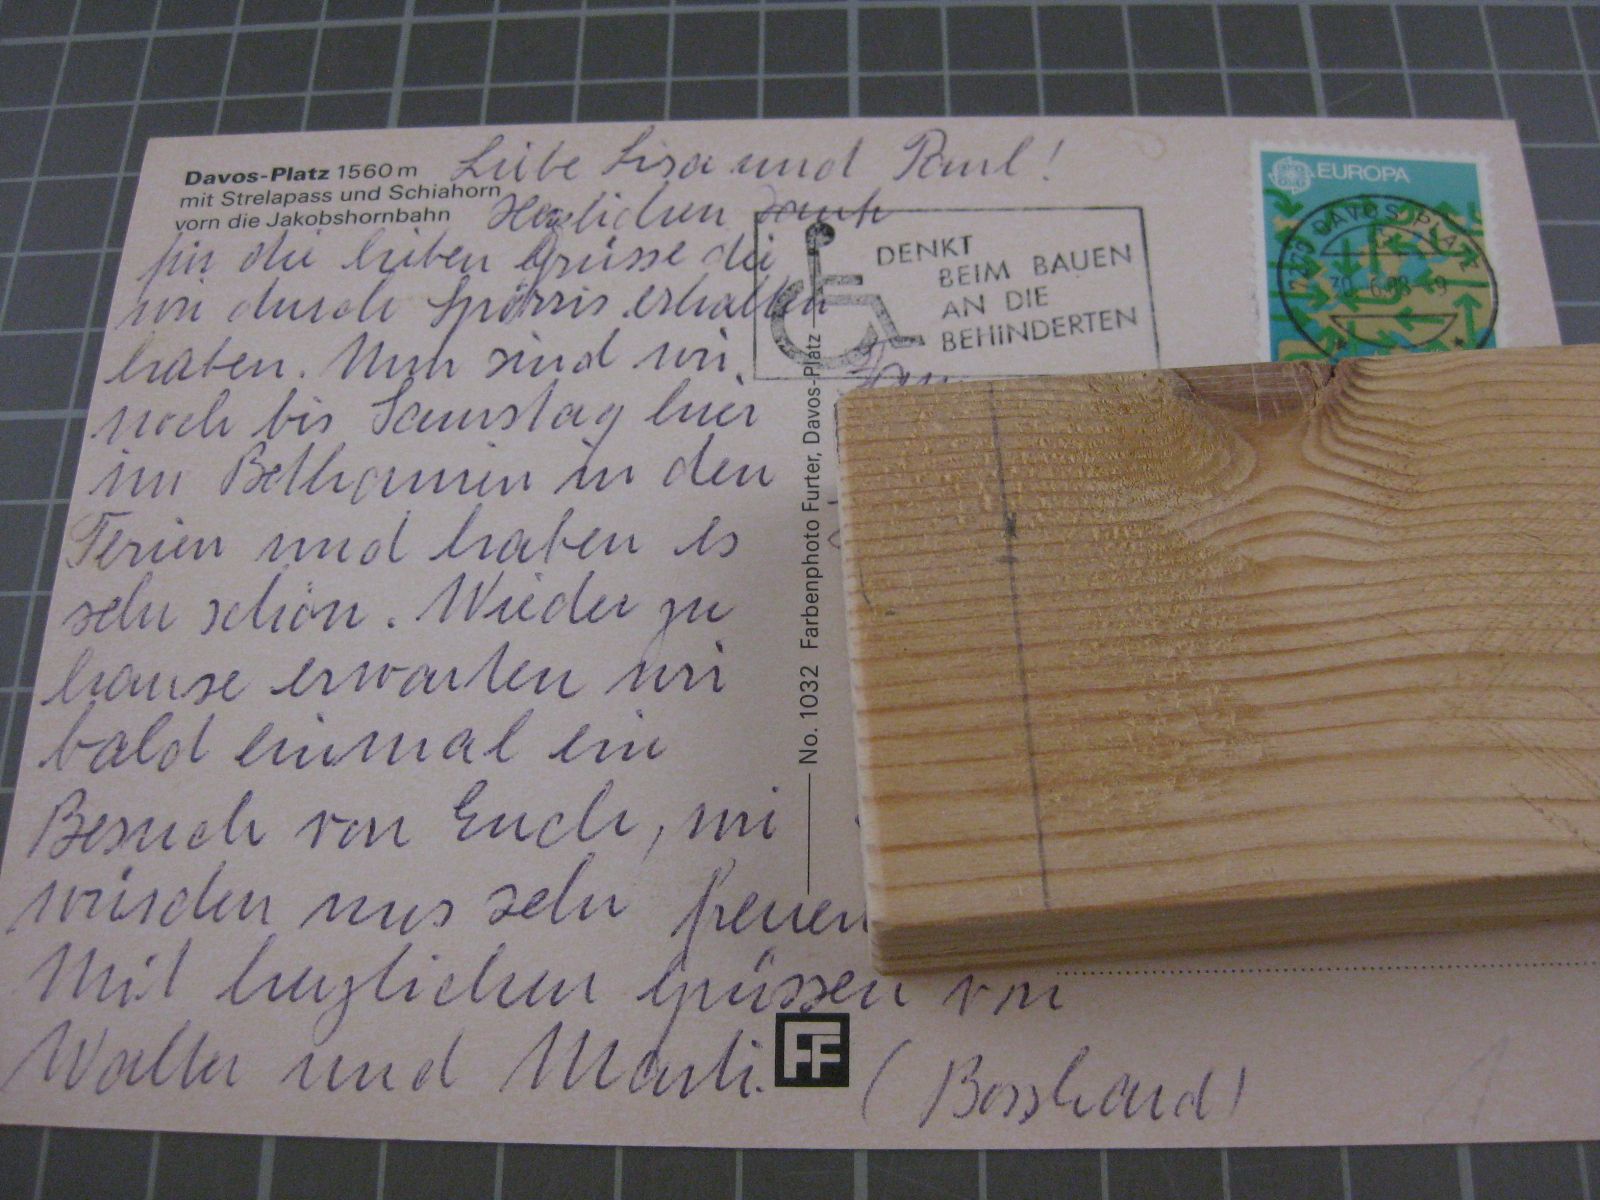 Davos-Platz 1560 m
mit Strelapass und Schiahorn
vorn die Jakobshornbahn
Liebe Lisa und Paul!
Herzlichen Dank
für die lieben Grüsse die
wir durch Spörris erhalten
haben. Nun sind wir
noch bis Samstag hier
im Bethanien in den
Ferien und haben es
sehr schön. Wieder zu
hause erwarten wir
bald einmal ein
Besuch von Euch, wir
würden uns sehr freuen
Mit herzlichen Grüssen von
Walter und Marli.
(Bosshard)
No. 1032 Farbenphoto Furter, Davos-Platz
FF
DENKT
BEIM BAUEN
AN DIE
BEHINDERTEN
EUROPA
7270 DAVOS PLATZ